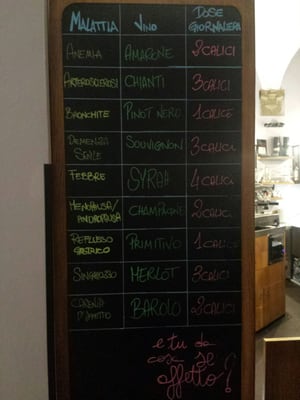 MALATTIA VINO DOSE
GIORNALIERA
ANEMIA AMARONE 2 CALICI
ARTEROSCLEROSI CHIANTI 3 CALICI
BRONCHITE PINOT NERO 1 CALICE
DEMENZA
SENILE SOUVIGNON 3 CALICI
FEBBRE SYRAH 4 CALICI
MENOPAUSA/
ANDROPAUSA CHAMPAGNE 2 CALICI
REFLUSSO
GASTRICO PRIMITIVO 1 CALICE
SINGHIOZZO MERLOT 3 CALICI
CARENZA
D'AFFETTO BAROLO 2 CALICI
e tu da
cosa sei
affetto?